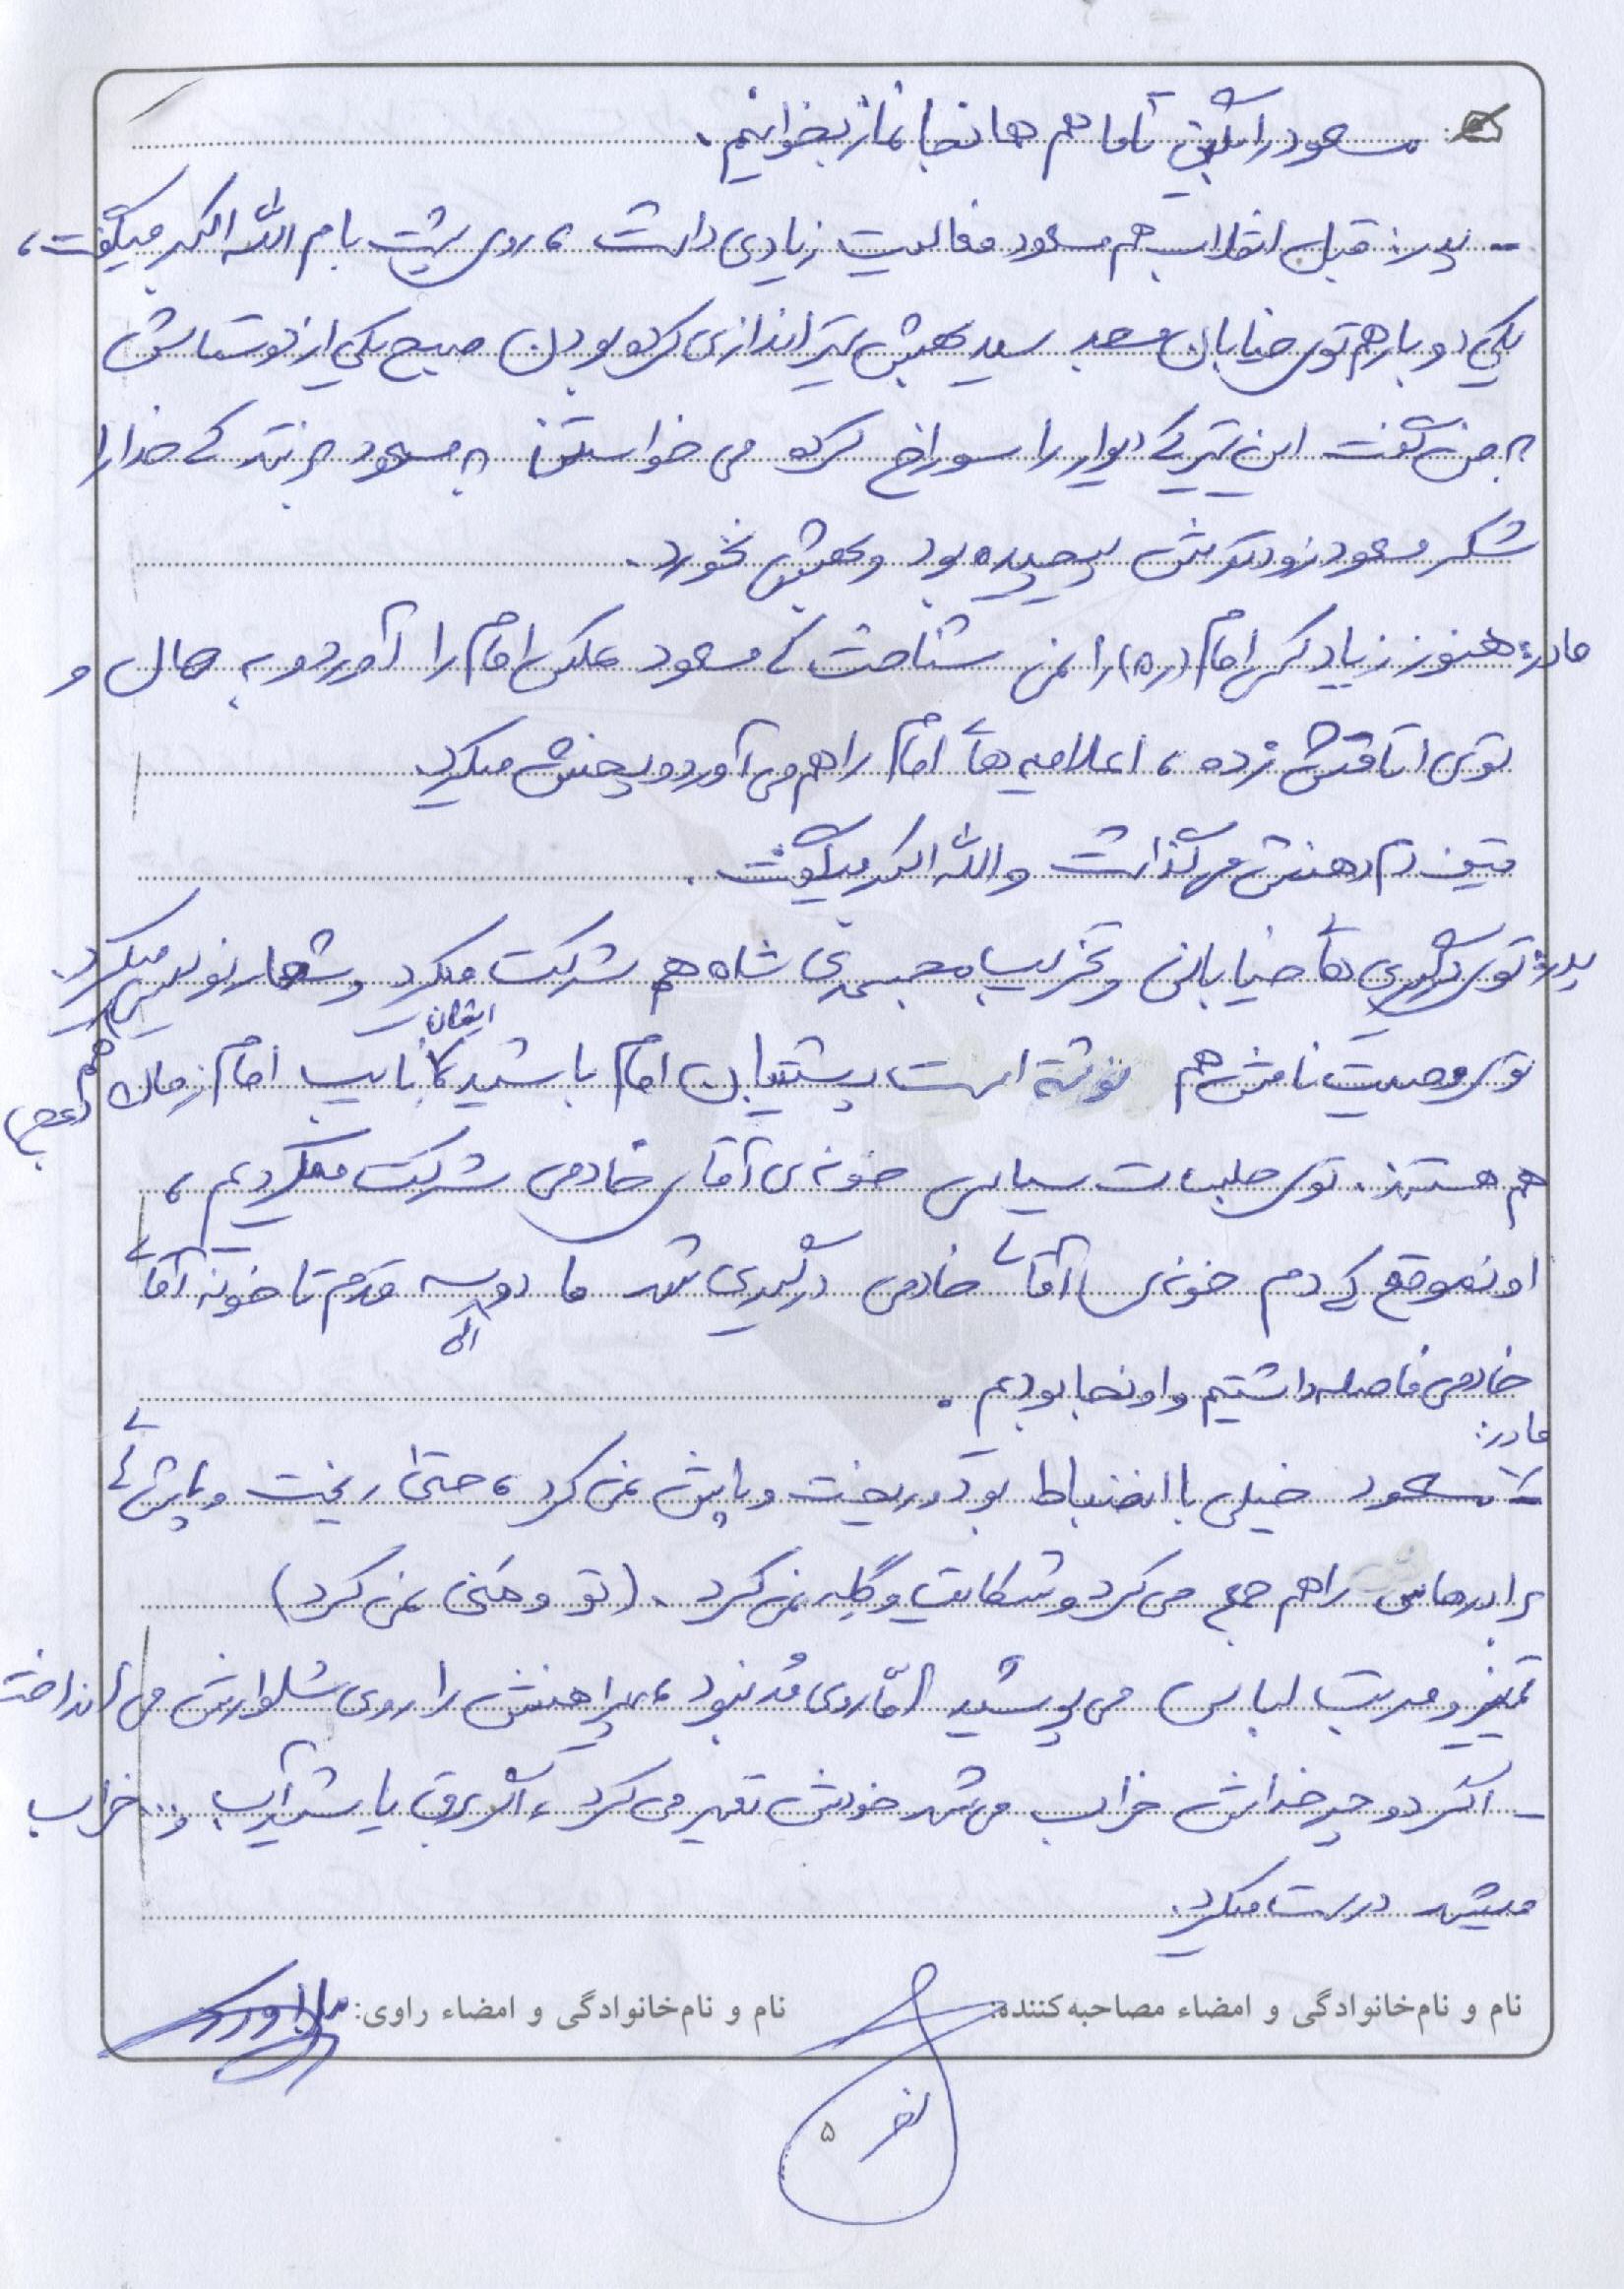 مسعود را بگین تا ما هم همانجا نماز بخوانیم.
- پدر: قبل انقلاب هم مسعود فعالیت زیادی داشت، روی پشت بام الله اکبر میگفت،
یکی دو بار هم توی خیابان مسجد سید بهش تیراندازی کرده بودن صبح یکی از دوستاش
به من گفت این تیر که دیوار را سوراخ کرده می خواستن به مسعود بزنند که خدا را
شکر مسعود زودتر پیچیده بود و بهش نخورد.
مادر: هنوز زیاد کسی امام (ره) را نمی شناخت که مسعود عکس امام را آورد و به هال و
توی اتاقش زده، اعلامیه های امام را هم می آورد و پخش میکرد
دم دهنش میگذاشت و الله اکبر میگفت.
پدر: توی درگیری های خیابانی و تخریب مجسمه ی شاه هم شرکت میکرد و شعار نویسی هم میکرد.
توی وصیت نامش هم نوشته است پشتیبان امام باشید که ایشان نایب امام زمان (عج)
هم هستند. توی جلسات سیاسی خونه ی آقای خادمی شرکت میکردیم،
اونموقع که دم خونه ی آقای خادمی درگیری شد ما دو سه قدم تا خونه آقای
خادمی فاصله داشتیم و اونجا بودیم.
مادر:
- مسعود خیلی با انضباط بود و ریخت و پاش نمی کرد، حتی ریخت و پاش های
برادرهاش را هم جمع می کرد و شکایت و گله نمی کرد. (تو و منی نمی کرد)
تمیز و مرتب لباس می پوشید امّا روی مُد نبود، پیراهنش را روی شلوارش می انداخت
- اگر دوچرخه اش خراب می شد خودش تعمیر می کرد، اگر برق یا شیر آب و... خراب
میشد درست میکرد.
نام و نام‌خانوادگی و امضاء مصاحبه‌کننده:
نام و نام‌خانوادگی و امضاء راوی:
۵